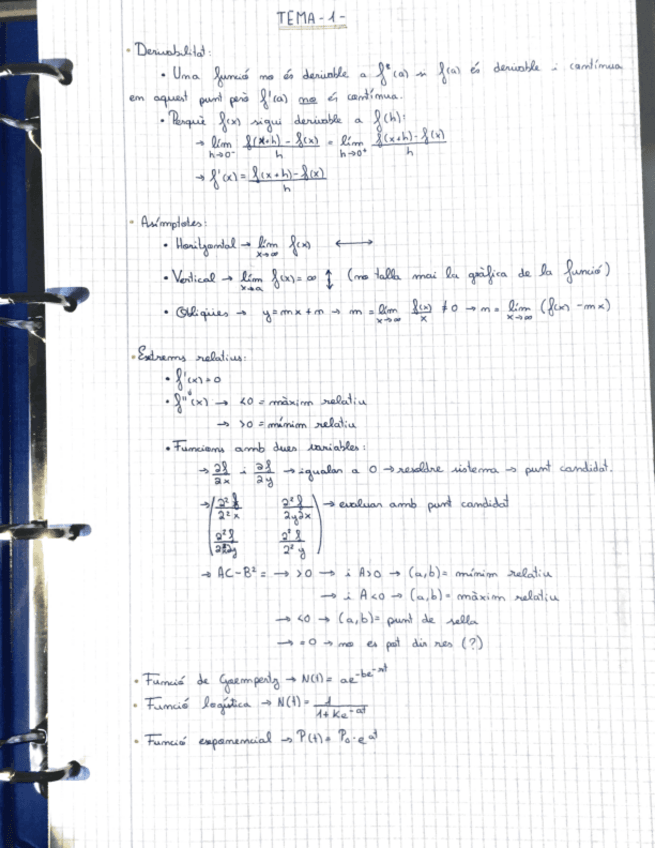 TEMA - 1 -
• Derivabilitat:
• Una funció no és derivable a f''(a) si f(a) és derivable i contínua
em aquest punt però f'(a) no és contínua.
• Perquè f(x) sigui derivable a f(h):
→ lím h→0⁻ f(x+h) - f(x) / h = lím h→0⁺ f(x+h) - f(x) / h
→ f'(x) = f(x+h) - f(x) / h
• Asímptotes:
• Horitzontal → lím x→∞ f(x) ↔
• Vertical → lím x→a f(x) = ∞ ↕ (no talla mai la gràfica de la funció)
• Obliqües → y = mx + n → m = lím x→∞ f(x)/x ≠ 0 → n = lím x→∞ (f(x) - mx)
• Extrems relatius:
• f'(x) = 0
• f''(x) → <0 = màxim relatiu
→ >0 = mínim relatiu
• Funcions amb dues variables:
→ ∂f/∂x i ∂f/∂y → igualar a 0 → resoldre sistema → punt candidat.
→ ( ∂²f/∂²x ∂²f/∂y∂x ) → evaluar amb punt candidat
( ∂²f/∂x∂y ∂²f/∂²y )
→ AC - B² = → >0 → i A>0 → (a,b) = mínim relatiu
→ i A<0 → (a,b) = màxim relatiu
→ <0 → (a,b) = punt de sella
→ =0 → no es pot dir res (?)
• Funció de Goempertz → N(t) = ae^-be^-rt
• Funció logística → N(t) = 1 / 1 + Ke^-at
• Funció exponencial → P(t) = P₀ · e^at